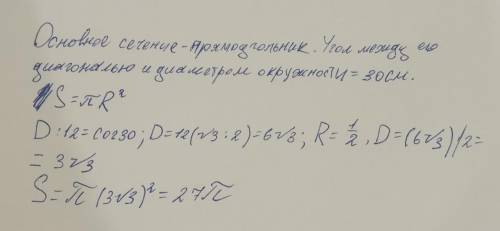 Основное сечение - прямоугольник. Угол между его
диагональю и диаметром окружности = 30см.
S = πR²
D : 12 = cos30; D = 12(√3 : 2) = 6√3; R = 1/2 . D = (6√3)/2 =
= 3√3
S = π (3√3)² = 27π